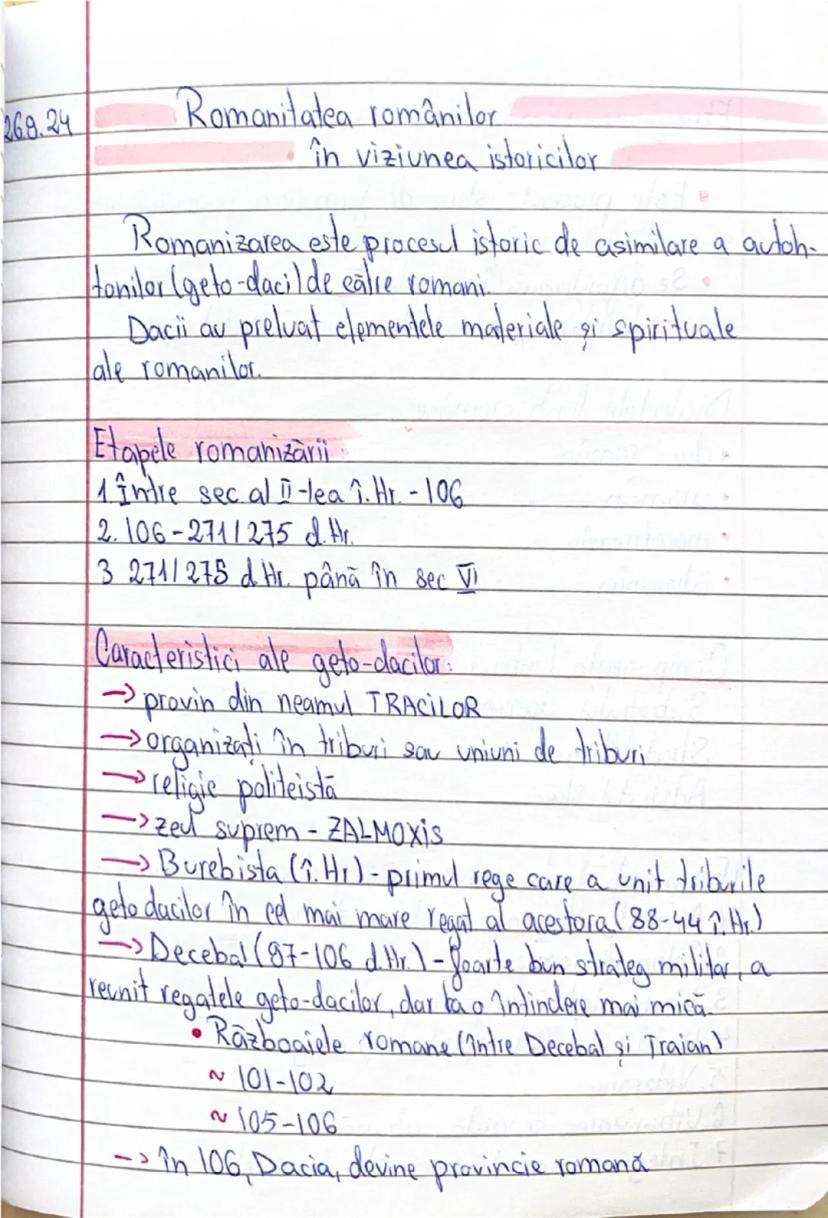 26.9.24
Romanitatea românilor
în viziunea istoricilor
Romanizarea este procesul istoric de asimilare a autoh-
tonilor (geto-daci) de către romani.
Dacii au preluat elementele materiale și spirituale
ale romanilor.
Etapele romanizării:
1. Între sec al II-lea î.Hr. - 106
2. 106-271/275 d.Hr.
3 271/275 d.Hr. până în sec VI
Caracteristici ale geto-dacilor:
→ provin din neamul TRACILOR
→ organizați în triburi sau uniuni de triburi
→ religie politeistă
→ zeul suprem - ZALMOXIS
→ Burebista (î.Hr) - primul rege care a unit triburile
geto dacilor în cel mai mare regat al acestora (88-44 î.Hr.)
→ Decebal (87-106 d.Hr.) - foarte bun strateg militar, a
reunit regatele geto-dacilor, dar la o întindere mai mică.
• Războaiele romane (între Decebal și Traian)
~ 101-102
~ 105-106
→ în 106, Dacia, devine provincie romană